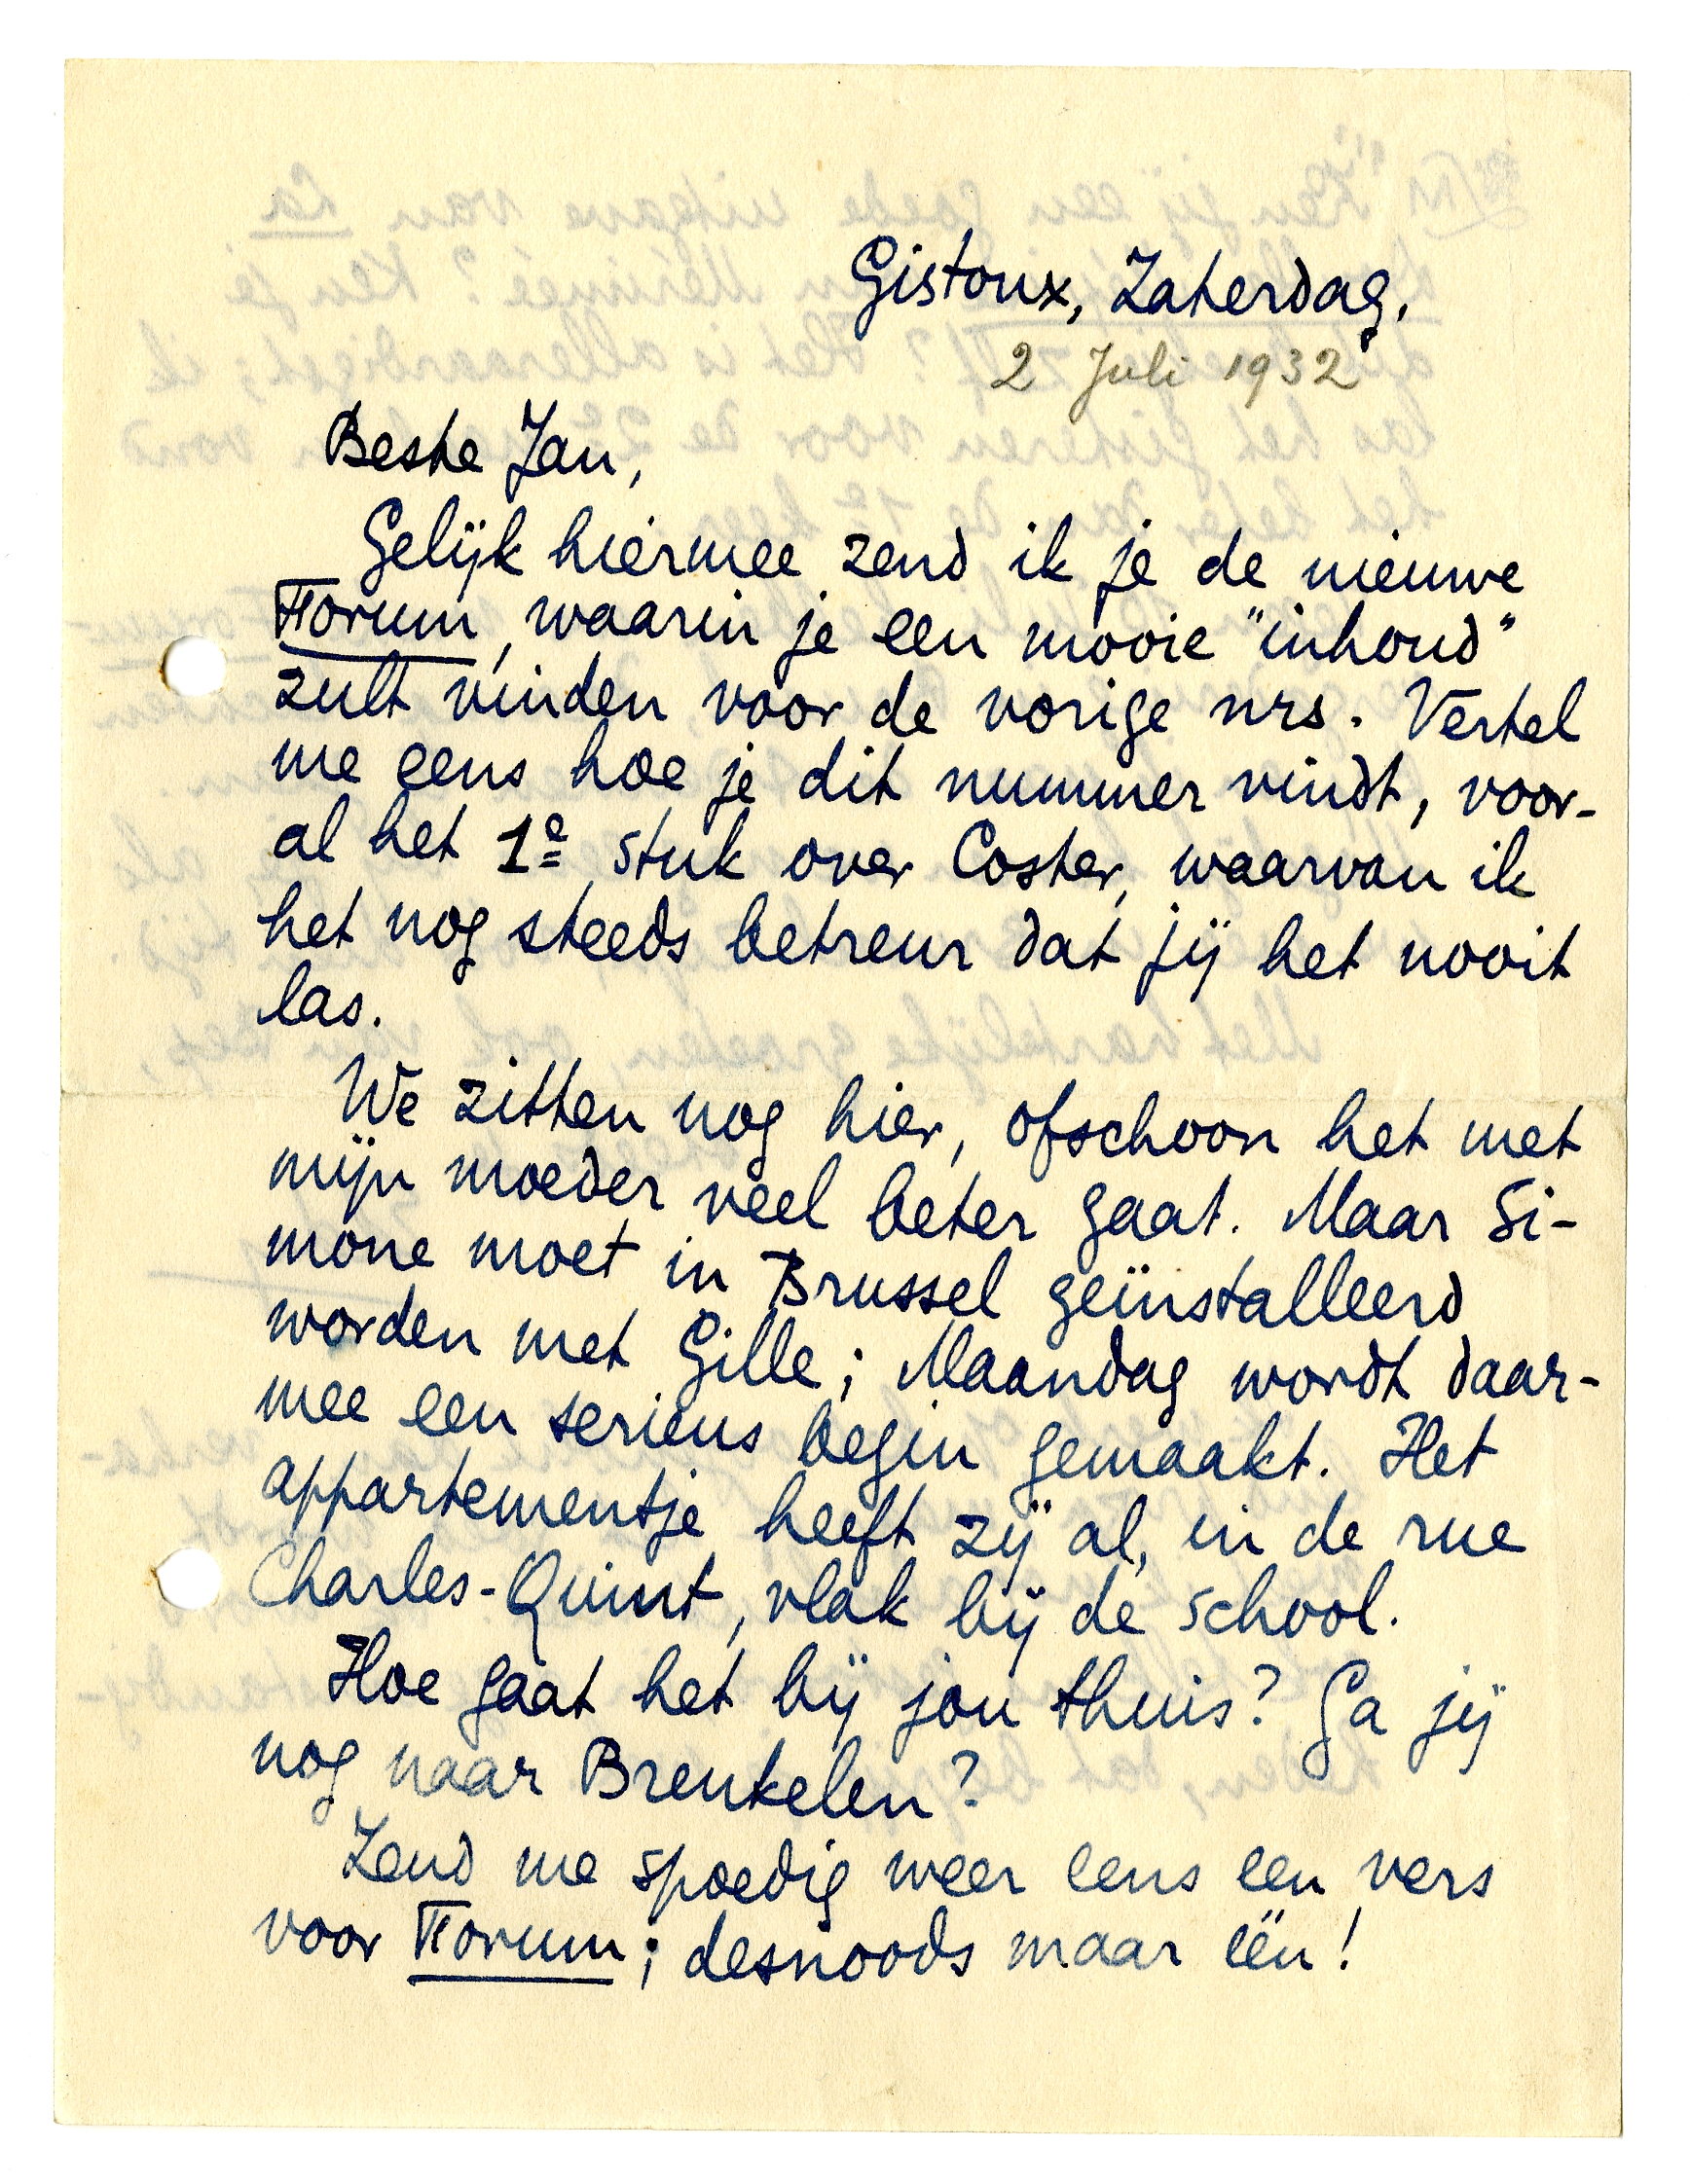 Gistoux, Zaterdag.
2 Juli 1932
Beste Jan,
Gelijk hiermee zend ik je de nieuwe
Forum, waarin je een mooie "inhoud"
zult vinden voor de vorige nrs. Vertel
me eens hoe je dit nummer vindt, voor-
al het 1e stuk over Coster, waarvan ik
het nog steeds betreur dat jij het nooit
las.
We zitten nog hier, ofschoon het met
mijn moeder veel beter gaat. Maar Si-
mone moet in Brussel geïnstalleerd
worden met Gille; Maandag wordt daar-
mee een serieus begin gemaakt. Het
appartementje heeft zij al, in de rue
Charles-Quint, vlak bij de school.
Hoe gaat het bij jou thuis? Ga jij
nog naar Breukelen?
Zend me spoedig weer eens een vers
voor Forum; desnoods maar één!